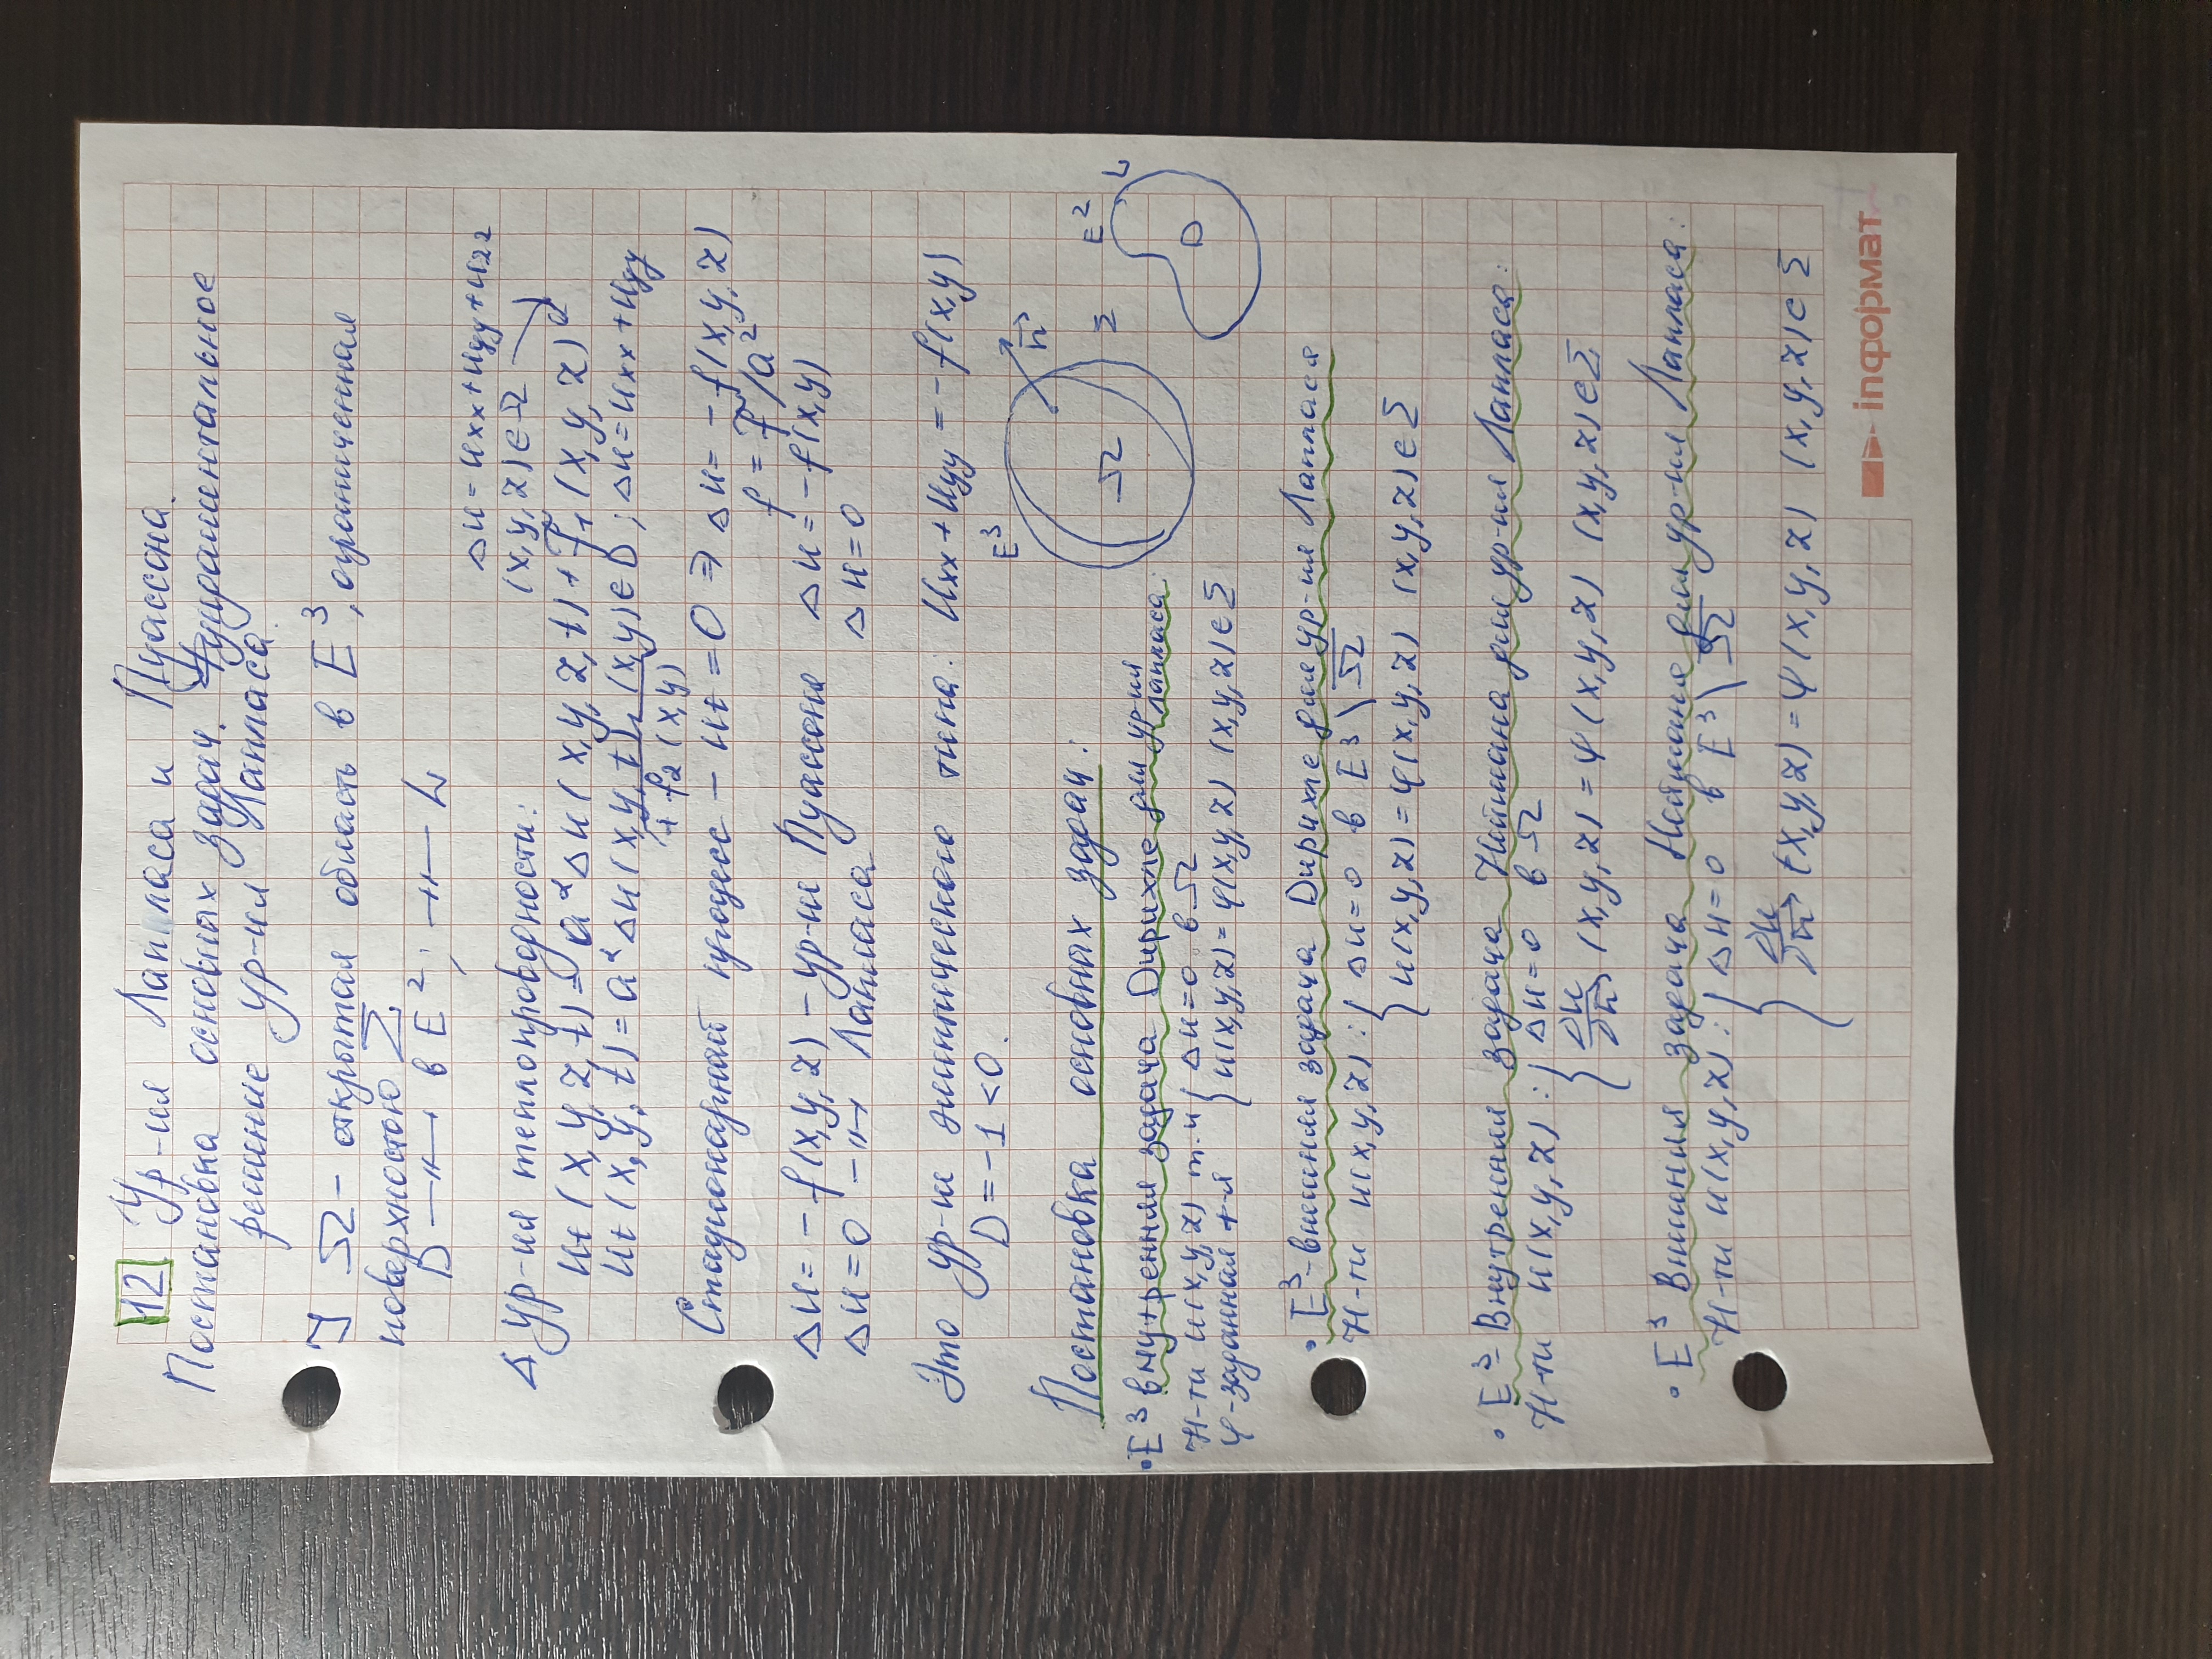 12 Ур-ия Лапласа и Пуассона.
Постановка основных задач. Фундаментальное
решение ур-ия Лапласа.
] Ω - открытая область в E³, ограниченная
поверхностью Σ
D —"— в E²; —"— L
Δu = uxx + uyy + uzz
(x,y,z) ∈ Ω
Δ ур-ия теплопроводности:
ut (x,y,z,t) = a² Δu (x,y,z,t) + f̃1 (x,y,z)
ut (x,y,t) = a² Δu (x,y,t), (x,y) ∈ D; Δu = uxx + uyy
+ f̃2 (x,y)
Стационарный процесс - ut = 0 ⇒ Δu = - f(x,y,z)
f = f̃/a²
Δu = - f(x,y,z) - ур-ие Пуассона Δu = - f(x,y)
Δu = 0 —"— Лапласа Δu = 0
Это ур-ие эллиптического типа: uxx + uyy = - f(x,y)
D = -1 < 0.
E³ Ω n⃗ Σ
E² D L
Постановка основных задач:
• E³ внутренняя задача Дирихле для ур-ия Лапласа:
Н-ти u(x,y,z) т.ч { Δu = 0 в Ω
u(x,y,z) = φ(x,y,z) (x,y,z) ∈ Σ
φ - заданная ф-я
• E³ - внешняя задача Дирихле для ур-ия Лапласа
Н-ти u(x,y,z) : { Δu = 0 в E³ \ Ω̅
u(x,y,z) = φ(x,y,z) (x,y,z) ∈ Σ
• E³ - Внутренняя задача Неймана для ур-ия Лапласа:
Н-ти u(x,y,z) : { Δu = 0 в Ω
∂u/∂n⃗ (x,y,z) = ψ (x,y,z) (x,y,z) ∈ Σ
• E³ Внешняя задача Неймана для ур-ия Лапласа:
Н-ти u(x,y,z) : { Δu = 0 в E³ \ Ω̅
∂u/∂n⃗ (x,y,z) = ψ (x,y,z) (x,y,z) ∈ Σ
inформат